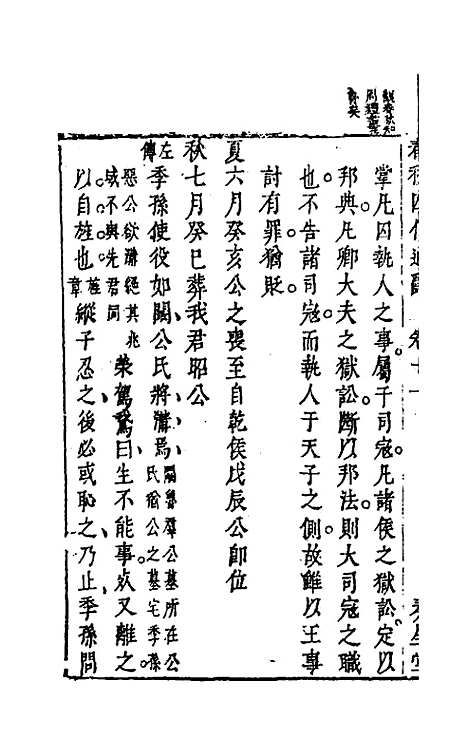 掌凡囚執人之事屬于司寇凡諸侯之獄訟定以
邦典凡卿大夫之獄訟斷以邦法則大司寇之職
也不告諸司寇而執人于天子之側故雖以王事
討有罪猶貶
夏六月癸亥公之喪至自乾侯戊辰公即位
秋七月癸巳葬我君昭公
左傳季孫使役如闞公氏將溝焉闞魯羣公墓所在公氏猶公之墓宅季孫
惡公欲溝絕其兆域不與先君同榮駕鵞曰生不能事死又離之
以自旌也旌章縱子忍之後必或恥之乃止季孫問